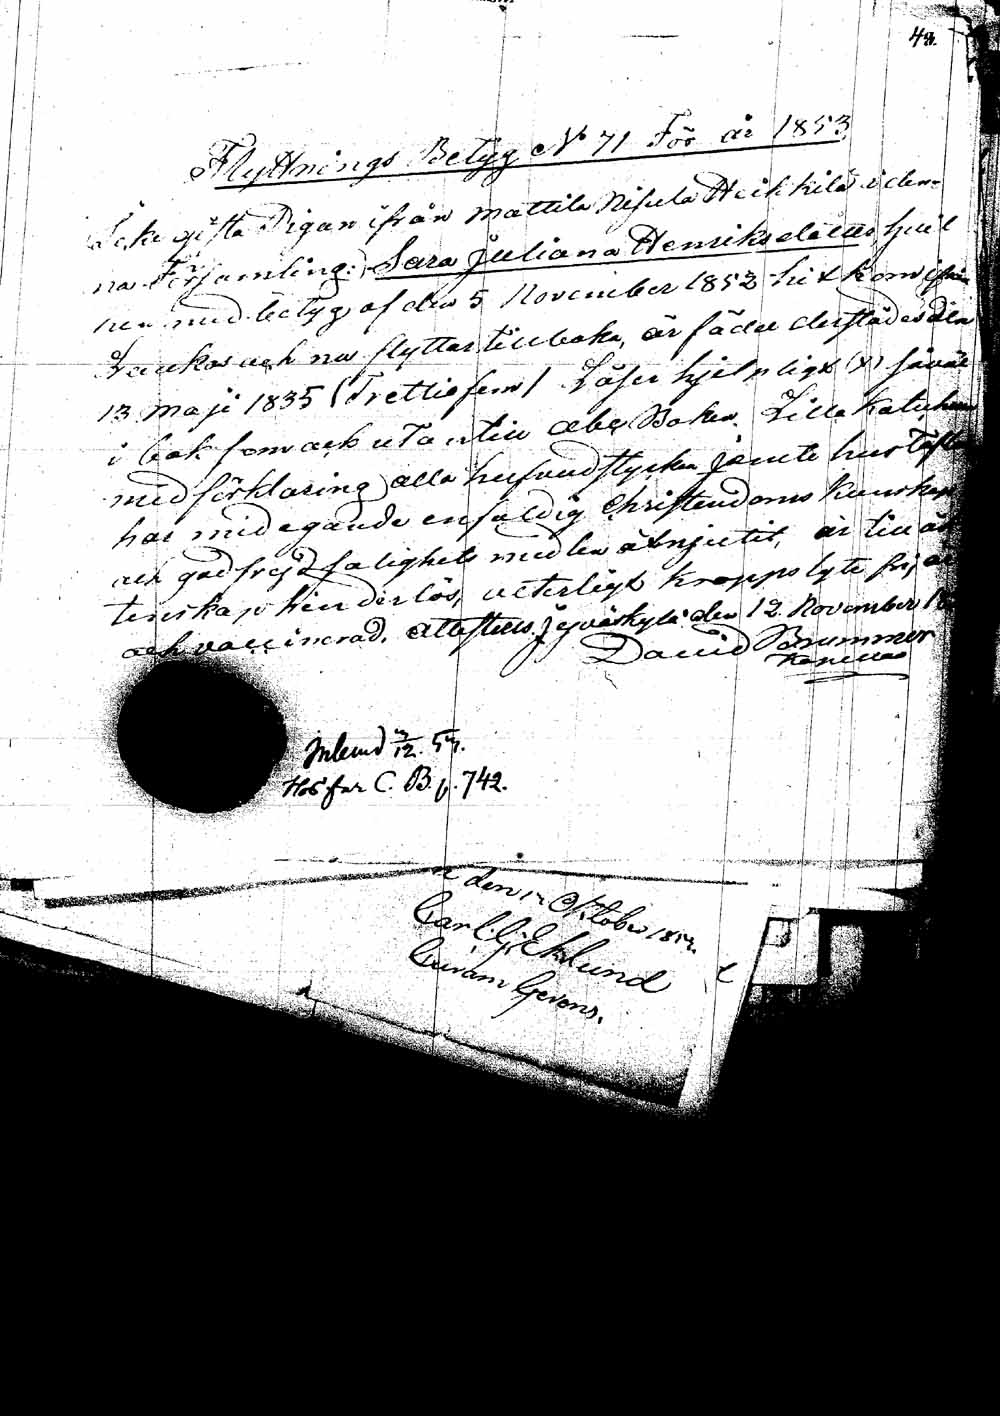 48.
Flyttnings Betyg No 71 För år 1853.
Icke gifta Pigan ifrån Mattila Nisula Heikkilä i den-
na Församling Sara Juliana Henriksdotter, hvil
ken med betyg af den 5 November 1852 hit kom ifrån
Laukas och nu flyttar tillbaka, är född derstädes den
13 Maji 1835 (Trettiofem) Läser hjelpligt (x) såväl
i bok som och utantill abc Boken, Lilla Katches
med förklaring alla hufvudstycken jemte hustafla
har midegande enfaldig Christendoms Kunskap
och god frejd salighets medlen åtnjutit, är till äk
tenskap hinderlös, veterligt kropps lyte fri,
och vaccinerad. Attesteras Jyväskylä den 12 November 18
David Brummer
Inlemd 3/12. 53.
C. B. p. 742.
den 12 October 1853.
Carl G. Eklund